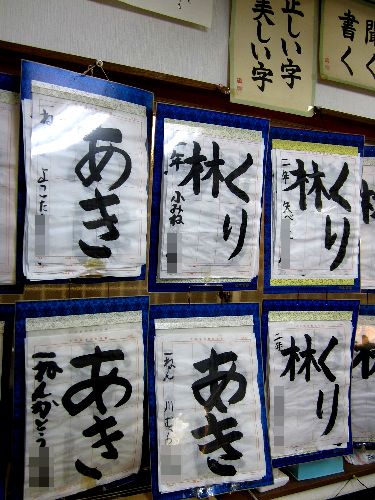 正しい字
美しい字
聞く
書く
あき
ね
よこた
くり
林
一年
小みね
くり
林
二年
矢べ
あき
一ねん
かとう
あき
一ねん
川むら
くり
林
二年